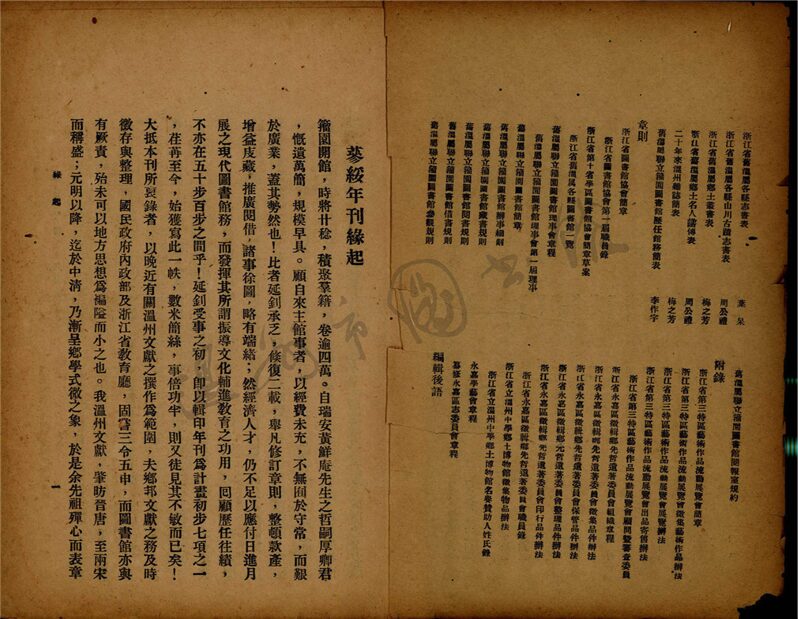 浙江省舊溫屬各縣志書表
浙江省舊溫屬各縣山川古蹟志書表 葉呆
浙江省舊溫屬鄉土志書表 周公禮
浙江省舊溫屬鄉土名人譜傳表 梅之芳
二十年來溫州雜誌調表 周公禮
舊溫屬聯立籀園圖書館歷任館務簡表 梅之芳
李作宇
章則
浙江省圖書館協會簡章
浙江省圖書館協會第一屆職員錄
浙江省第十省學區圖書館協會簡章草案
浙江省舊溫屬各縣圖書館一覽
舊溫屬聯立籀園圖書館理事會章程
舊溫屬聯立籀園圖書館理事會第一屆理事
舊溫屬聯立籀園圖書館簡章
舊溫屬聯立籀園圖書館辦事細則
舊溫屬聯立籀園圖書館藏書規則
舊溫屬聯立籀園圖書館閱書規則
舊溫屬聯立籀園圖書館借書規則
舊溫屬聯立籀園圖書館參觀規則
舊溫屬聯立籀園圖書館閱報室規約
附錄
浙江省第三特區藝術作品流動展覽會簡章
浙江省第三特區藝術作品流動展覽會徵集藝術作品辦法
浙江省第三特區藝術作品流動展覽會展覽辦法
浙江省第三特區藝術作品流動展覽會出品寄售辦法
浙江省第三特區藝術作品流動展覽會顧問暨審查委員
浙江省永嘉區徵輯鄉先哲遺著委員會組織章程
浙江省永嘉區徵輯鄉先哲遺著委員會徵集品件辦法
浙江省永嘉區徵輯鄉先哲遺著委員會保管品件辦法
浙江省永嘉區徵輯鄉先哲遺著委員會整理品件辦法
浙江省永嘉區徵輯鄉先哲遺著委員會印行品件辦法
浙江省永嘉區徵輯鄉先哲遺著委員會職員錄
浙江省立溫州中學鄉土博物館徵集物品辦法
浙江省立溫州中學鄉土博物館名譽贊助人姓氏錄
永嘉學藝會章程
纂修永嘉區志委員會章程
編輯後語
蓼綏年刊緣起
籀園開館，時將廿稔，積聚羣籍，卷逾四萬。自瑞安黃鮮庵先生之哲嗣厚卿君
，慨遺萬簡，規模早具。顧自來主館事者，以經費未充，不無囿於守常，而艱
於廣業，蓋其勢然也！比者延釗承乏，倐復二載，舉凡修訂章則，整頓款產，
增益庋藏，推廣閱借，諸事徐圖，略有端緒；然經濟人才，仍不足以應付日進月
展之現代圖書館務，而發揮其所謂振導文化輔進教育之功用，囘顧歷任往績，
不亦在五十步百步之間乎！延釗受事之初，卽以輯印年刊爲計畫初步七項之一
，荏苒至今，始獲寫此一帙，數米簡絲，事倍功半，則又徒見其不敏而已矣！
大抵本刊所裒錄者，以晚近有關溫州文獻之撰作爲範圍，夫鄉邦文獻之務及時
徵存與整理，國民政府內政部及浙江省教育廳，固嘗三令五申，而圖書館亦與
有厥責，殆未可以地方思想爲褊隘而小之也。我溫州文獻，肇昉晉唐，至兩宋
而稱盛；元明以降，迄於中清，乃漸呈鄉學式微之象，於是余先祖殫心而表章
緣起
一